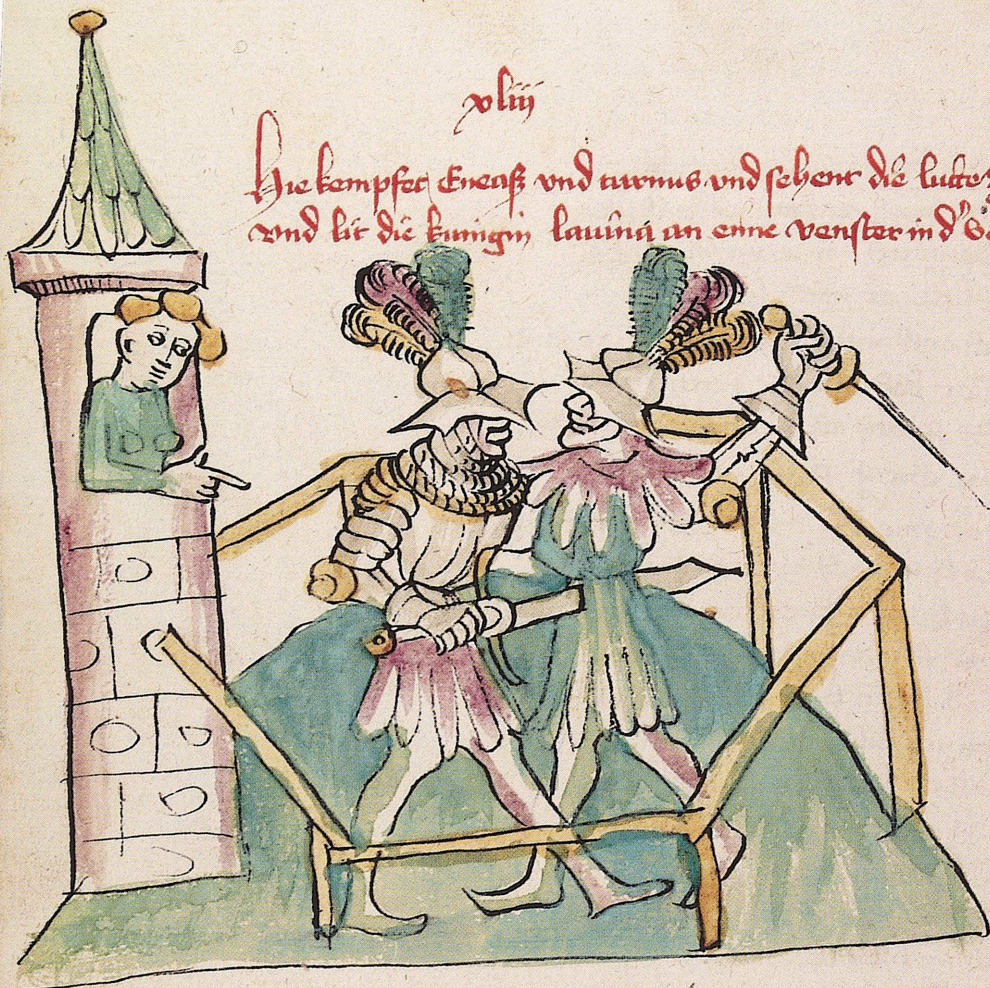 xliii
Hie kempfet Eneaß vnd turnus vnd sehent die lutte
vnd lit die kunigin lauina an eime venster in d